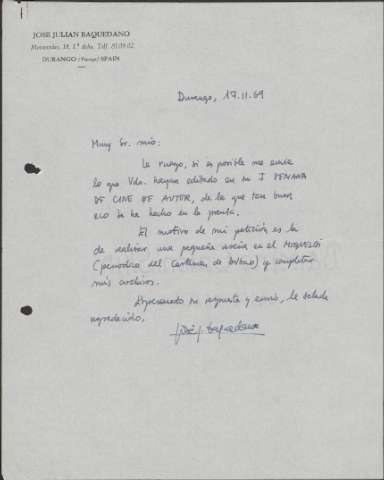 JOSE JULIAN BAQUEDANO
Montevideo, 18, 1.º dcha. Telf. 81.09.02
DURANGO (Vizcaya) SPAIN
Durango, 17.11.69
Muy Sr. mio:
Le ruego, si es posible me envie
lo que Vds. hayan editado en su I SEMANA
DE CINE DE AUTOR, de la que tan buen
eco se ha hecho en la prensa.
El motivo de mi petición es la
de realizar una pequeña reseña en el
(periodico del Certamen de Bilbao) y completar
mis archivos.
Esperando su respuesta y envio, le saluda
agradecido,
José J. Baquedano